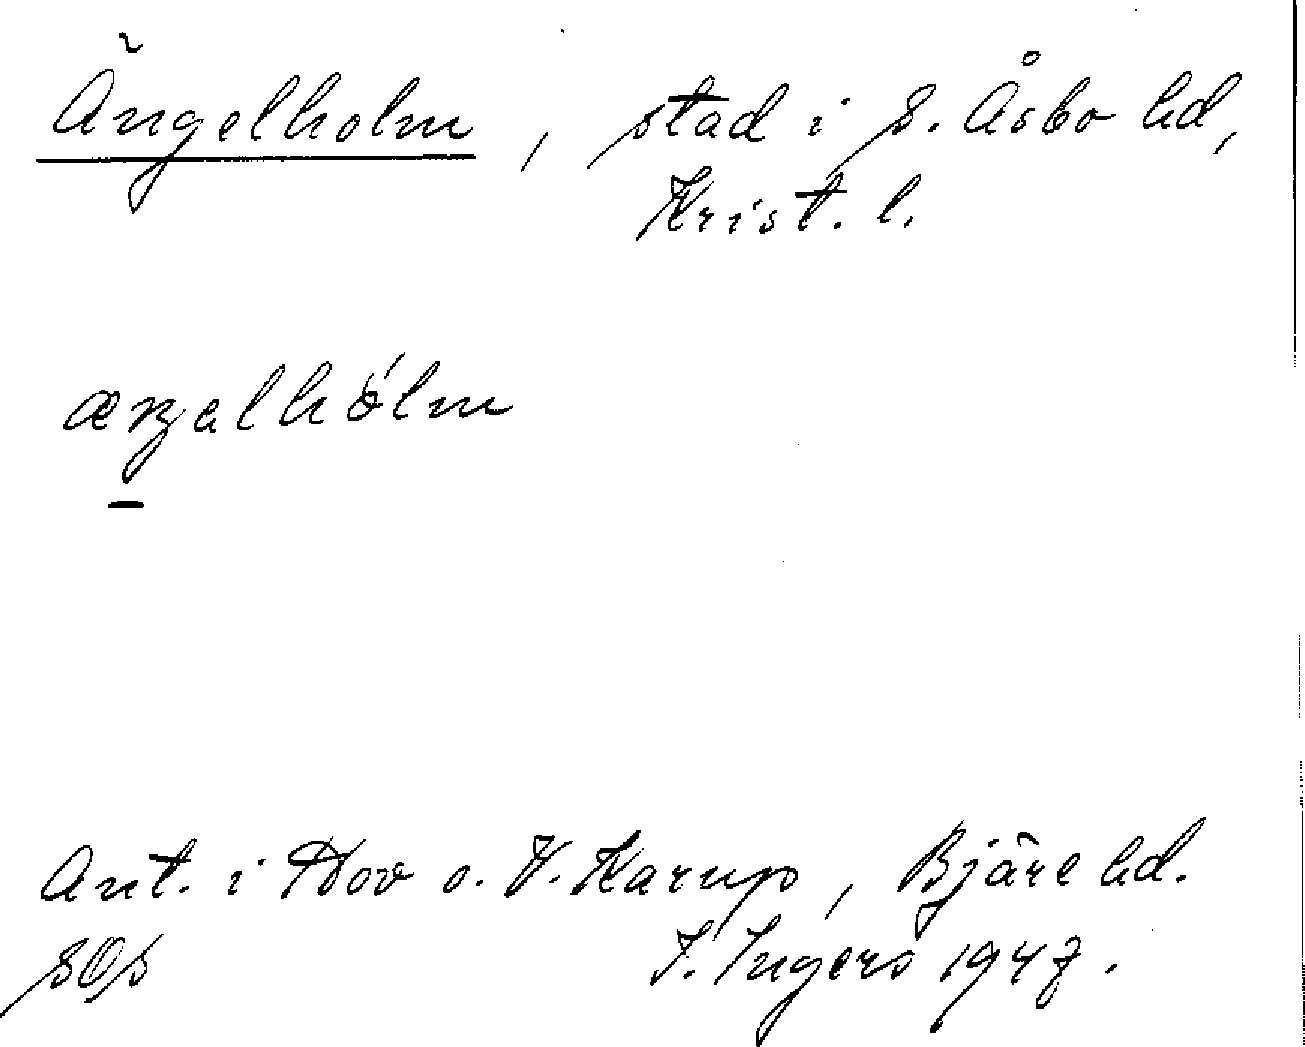 Ängelholm, stad i S. Åsbo hd,
Krist. l.
æŋəlhólm
Ant. i Hov o. V. Karup, Bjäre hd.
SOS I. Ingers 1947.